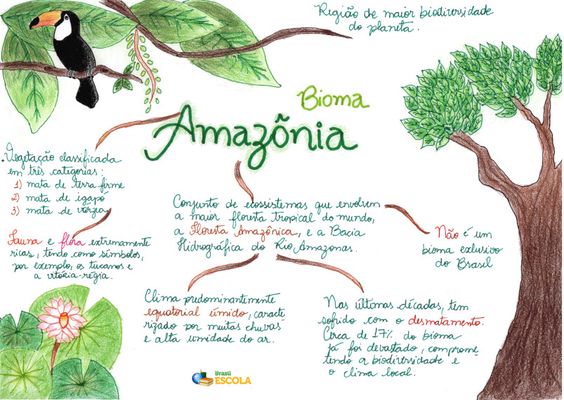 Região de maior biodiversidade
do planeta.
Bioma
Amazônia
Vegetação classificada
em três categorias:
1) mata de terra firme
2) mata de igapó
3) mata de várzea
Fauna e flora extremamente
ricas, tendo como símbolos,
por exemplo, os tucanos e
a vitória-régia.
Conjunto de ecossistemas que envolvem
a maior floresta tropical do mundo,
a Floresta Amazônica, e a Bacia
Hidrográfica do Rio Amazonas.
Não é um
bioma exclusivo
do Brasil
Clima predominantemente
equatorial úmido, caracte
rizado por muitas chuvas
e alta umidade do ar.
Nas últimas décadas, tem
sofrido com o desmatamento.
Cerca de 17% do bioma
já foi devastado, comprome
tendo a biodiversidade e
o clima local.
Brasil
ESCOLA